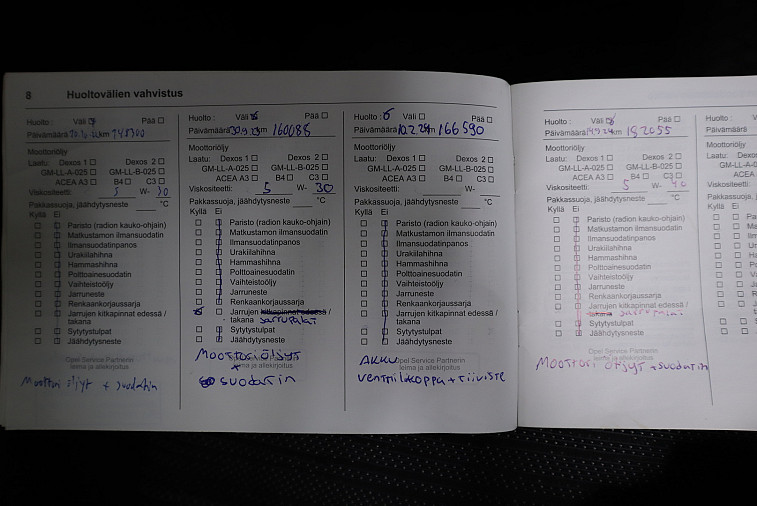 8 Huoltovälien vahvistus
Huolto : Väli Pää
Päivämäärä km
Moottoriöljy
Laatu: Dexos 1 Dexos 2
GM-LL-A-025 GM-LL-B-025
ACEA A3 B4 C3
Viskositeetti: 5 W- 30
Pakkassuoja, jäähdytysneste °C
Kyllä Ei
Paristo (radion kauko-ohjain)
Matkustamon ilmansuodatin
Ilmansuodatinpanos
Urakiilahihna
Hammashihna
Polttoainesuodatin
Vaihteistoöljy
Jarruneste
Renkaankorjaussarja
Jarrujen kitkapinnat edessä /
takana
Sytytystulpat
Jäähdytysneste
Opel Service Partnerin
leima ja allekirjoitus
Moottori öljyt + suodatin
Huolto : Väli Pää
Päivämäärä km 160088
Moottoriöljy
Laatu: Dexos 1 Dexos 2
GM-LL-A-025 GM-LL-B-025
ACEA A3 B4 C3
Viskositeetti: 5 W- 30
Pakkassuoja, jäähdytysneste °C
Kyllä Ei
Paristo (radion kauko-ohjain)
Matkustamon ilmansuodatin
Ilmansuodatinpanos
Urakiilahihna
Hammashihna
Polttoainesuodatin
Vaihteistoöljy
Jarruneste
Renkaankorjaussarja
Jarrujen kitkapinnat edessä /
takana jarrupalat
Sytytystulpat
Jäähdytysneste
Moottori öljyt
+
suodatin
Huolto : Väli Pää
Päivämäärä 10.2.24 km 166590
Moottoriöljy
Laatu: Dexos 1 Dexos 2
GM-LL-A-025 GM-LL-B-025
ACEA A3 B4 C3
Viskositeetti: W-
Pakkassuoja, jäähdytysneste °C
Kyllä Ei
Paristo (radion kauko-ohjain)
Matkustamon ilmansuodatin
Ilmansuodatinpanos
Urakiilahihna
Hammashihna
Polttoainesuodatin
Vaihteistoöljy
Jarruneste
Renkaankorjaussarja
Jarrujen kitkapinnat edessä /
takana
Sytytystulpat
Jäähdytysneste
AKKU Opel Service Partnerin
leima ja allekirjoitus
venttiilikoppa + tiiviste
Huolto : Väli Pää
Päivämäärä km 182055
Moottoriöljy
Laatu: Dexos 1 Dexos 2
GM-LL-A-025 GM-LL-B-025
ACEA A3 B4 C3
Viskositeetti: 5 W- 40
Pakkassuoja, jäähdytysneste °C
Kyllä Ei
Paristo (radion kauko-ohjain)
Matkustamon ilmansuodatin
Ilmansuodatinpanos
Urakiilahihna
Hammashihna
Polttoainesuodatin
Vaihteistoöljy
Jarruneste
Renkaankorjaussarja
Jarrujen kitkapinnat edessä /
takana jarrupalat
Sytytystulpat
Jäähdytysneste
Opel Service Partnerin
leima ja allekirjoitus
Moottori öljyt + suodatin
Huolto :
Päivämäärä
Moottoriöljy
Laatu:
GM-LL-A
ACEA
Viskositeetti:
Pakkassuoja, jä
Kyllä Ei